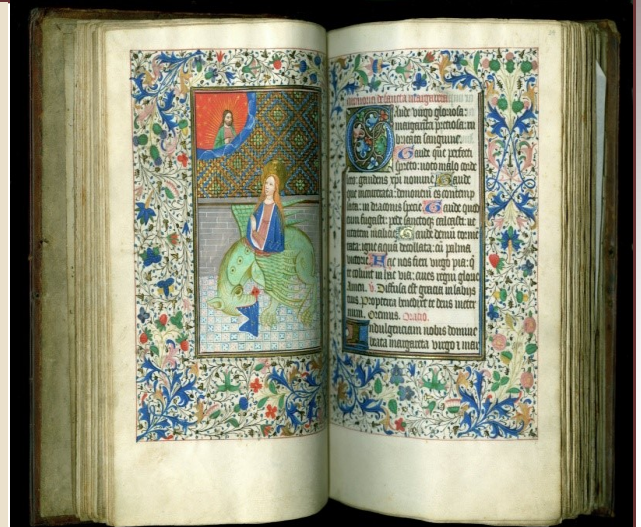 memoria de sancta margareta
Gaude virgo gloriosa:
margarita preciosa: ru
bricata sanguine.
Gaude que perfecti
spreto: noto malo corde
leto: gaudens xpi nomine. Gaude
que incarcerata: demonem es contemp
lata: in draconis specie. Gaude quod
cum fugasti: pede calcasti: ue
malicie. Gaude demum crema
ta: igne aqua decollata: cum palma
victorie. Fac nos virgo pia: q
te colunt in hac via: ciues regni glorie
Amen. v. Diffusa est gracia in labijs
tuis. Propterea benedixit te deus in eter
num. Oremus. Oratio.
Indulgenciam nobis domine
beata margareta virgo et mar